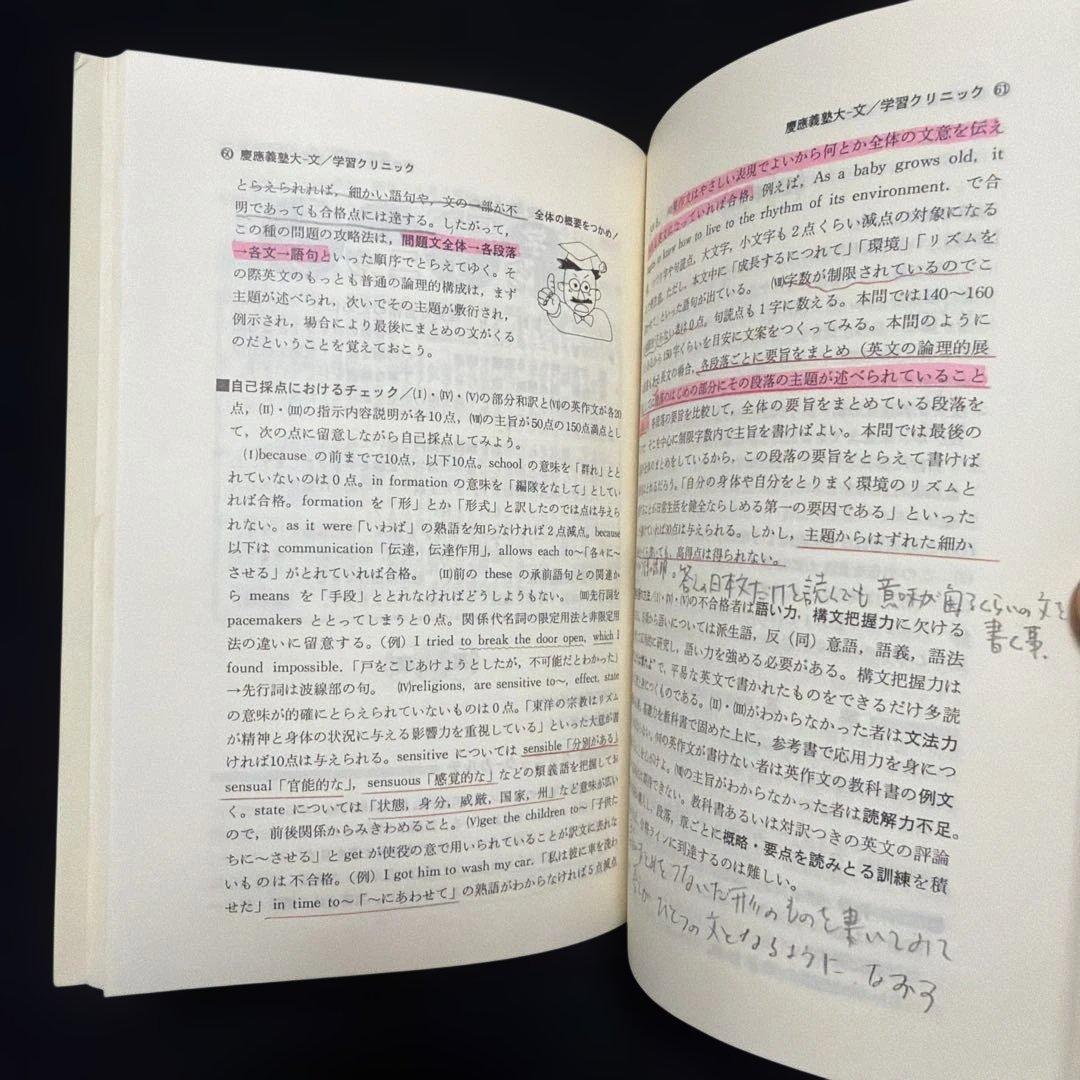 60 慶應義塾大-文／学習クリニック
とらえられれば，細かい語句や，文の一部が不
明であっても合格点には達する。したがって，
この種の問題の攻略法は，問題文全体→各段落
→各文→語句といった順序でとらえてゆく。そ
の際英文のもっとも普通の論理的構成は，まず
主題が述べられ，次いでその主題が敷衍され，
例示され，場合により最後にまとめの文がくる
のだということを覚えておこう。
全体の概要をつかめ！
■自己採点におけるチェック／(Ⅰ)・(Ⅳ)・(Ⅴ)の部分和訳と(Ⅶ)の英作文が各20
点，(Ⅱ)・(Ⅲ)の指示内容説明が各10点，(Ⅷ)の主旨が50点の150点満点とし
て，次の点に留意しながら自己採点してみよう。
(Ⅰ)because の前までで10点，以下10点。school の意味を「群れ」とと
れていないのは０点。in formation の意味を「編隊をなして」としてい
れば合格。formation を「形」とか「形式」と訳したのでは点は与えら
れない。as it were「いわば」の熟語を知らなければ２点減点。because
以下は communication「伝達，伝達作用」，allows each to～「各々に～
させる」がとれていれば合格。 (Ⅱ)前の these の承前語句との関連か
ら means を「手段」ととれなければどうしようもない。 (Ⅲ)先行詞を
pacemakers ととってしまうと０点。関係代名詞の限定用法と非限定用
法の違いに留意する。(例) I tried to break the door open, which I
found impossible.「戸をこじあけようとしたが，不可能だとわかった」
→先行詞は波線部の句。 (Ⅳ)religions, are sensitive to～, effect, state
の意味が的確にとらえられていないものは０点。「東洋の宗教はリズム
が精神と身体の状況に与える影響力を重視している」といった大意が書
ければ10点は与えられる。sensitive については sensible「分別がある」
sensual「官能的な」，sensuous「感覚的な」などの類義語を把握してお
く。state については「状態，身分，威厳，国家，州」など意味が広い
ので，前後関係からみきわめること。(Ⅴ)get the children to～「子供た
ちに～させる」と get が使役の意で用いられていることが訳文に表れな
いものは不合格。(例) I got him to wash my car.「私は彼に車を洗わ
せた」 in time to～「～にあわせて」の熟語がわからなければ５点減点
慶應義塾大-文／学習クリニック 61
英作文はやさしい表現でよいから何とか全体の文意を伝え
になっていれば合格。例えば，As a baby grows old, it
to know how to live to the rhythm of its environment. で合
や句読点，大文字，小文字も２点くらい減点の対象になる
ただし，本文中に「成長するにつれて」「環境」「リズムを
といった語句が出ている。 (Ⅷ)字数が制限されているのでこ
ない答は０点。句読点も１字に数える。本問では140～160
150字くらいを目安に文案をつくってみる。本問のように
長文の場合，各段落ごとに要旨をまとめ（英文の論理的展
のはじめの部分にその段落の主題が述べられていること
各段落の要旨を比較して，全体の要旨をまとめている段落を
そこを中心に制限字数内で主旨を書けばよい。本問では最後の
まとめをしているから，この段落の要旨をとらえて書けば
れるだろう。「自分の身体や自分をとりまく環境のリズムと
とが日常生活を健全ならしめる第一の要因である」といった
ていれば30点は与えられる。しかし，主題からはずれた細か
いても，高得点は得られない。
答えは日本文だけを読んでも意味が通るくらいの文を
書く事.
(Ⅳ)・(Ⅴ)の不合格者は語い力，構文把握力に欠ける
語いについては派生語，反（同）意語，語義，語法
に研究し，語い力を強める必要がある。構文把握力は
で，平易な英文で書かれたものをできるだけ多読
につくものである。(Ⅱ)・(Ⅲ)がわからなかった者は文法力
力を教科書で固めた上に，参考書で応用力を身につ
の英作文が書けない者は英作文の教科書の例文
(Ⅷ)の主旨がわからなかった者は読解力不足。
できない。教科書あるいは対訳つきの英文の評論
段落，章ごとに概略・要点を読みとる訓練を積
ラインに到達するのは難しい。
つないだ形のものを書いてみて
ひとつの文となるように なおす